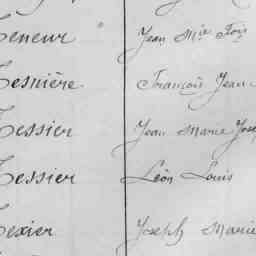 Teneur Jean Mie Fois
Tesnière François Jean
Tessier Jean Marie Jose
Tessier Léon Louis
Texier Joseph Marie